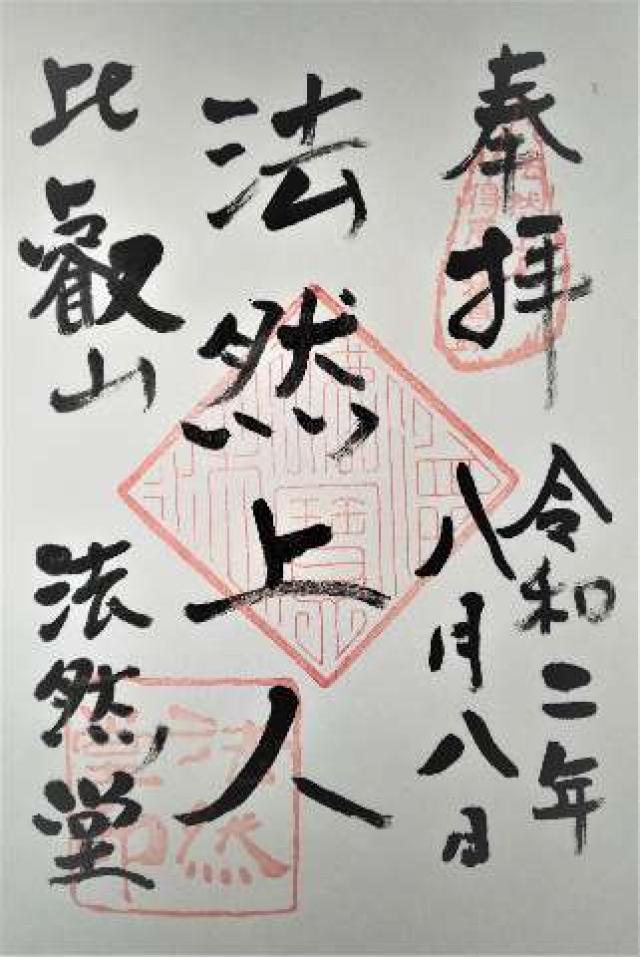 奉拝
令和二年
八月八日
法然上人
比叡山
法然堂
法然
堂印